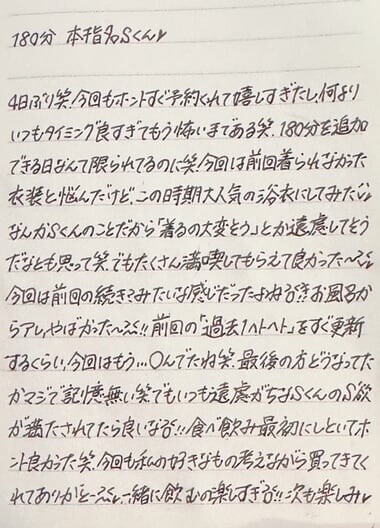 180分 本指名Sくん♥
4日ぶり笑!今回もホントすぐ予約くれて嬉しすぎたし、何より
いつもタイミング良すぎてもう怖いまである笑、180分を追加
できる日なんて限られてるのに笑!今回は前回着られなかった
衣装と悩んだけど、この時期大人気の浴衣にしてみた
なんかSくんのことだから「着るの大変そう」とか遠慮してそう
だなとも思って笑、でもたくさん満喫してもらえて良かった〜
今回は前回の続き?みたいな感じだったよね!!お風呂
からアレ、やばかった〜!!前回の「過去1ヘトヘト」をすぐ更新
するくらい、今回はもう…〇んでたね笑、最後の方どうなってた
かマジで記憶無い笑でもいつも遠慮がちなSくんのS欲
が満たされてたら良いな!!食べ飲み最初にしといてホ
ント良かった笑、今回も私の好きなもの考えながら買ってきてく
れてありがとー、一緒に飲むの楽しすぎる!!次も楽しみ♥